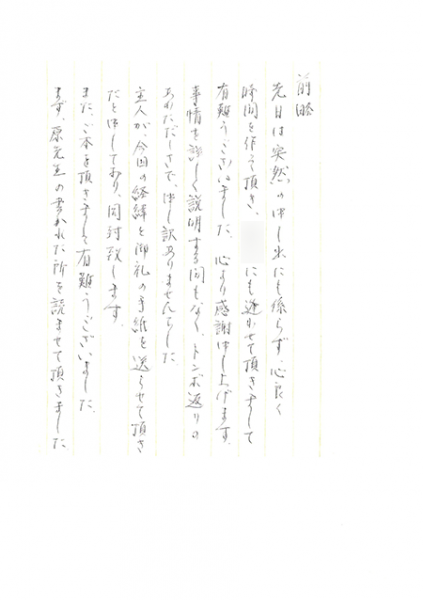 前略
先日は突然の申し出にも係らず、心良く
時間を作って頂き、 にも逢わせて頂きまして
有難うございました。心より感謝申し上げます。
事情を詳しく説明する間もなく、トンボ返りの
あわただしさで、申し訳ありませんでした
主人が、今回の経緯と御礼の手紙を送らせて頂き
だと申しており、同封致します。
また、ご本を頂きまして有難うございました。
ます、原先生の書かれた所を読ませて頂きました